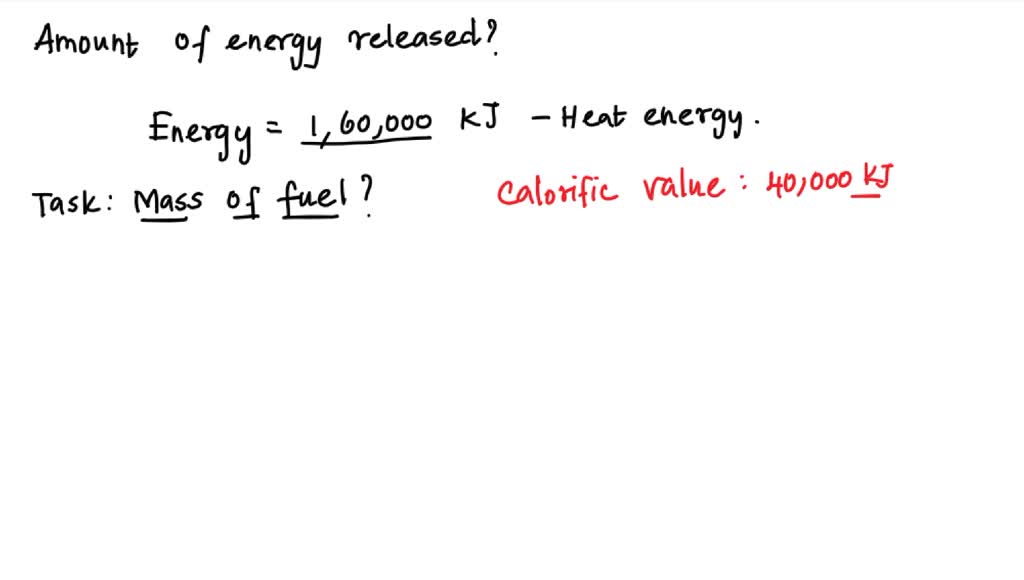 Amount of energy released?
Energy = 1,60,000 KJ - Heat energy.
Task: Mass of fuel? Calorific value: 40,000 KJ